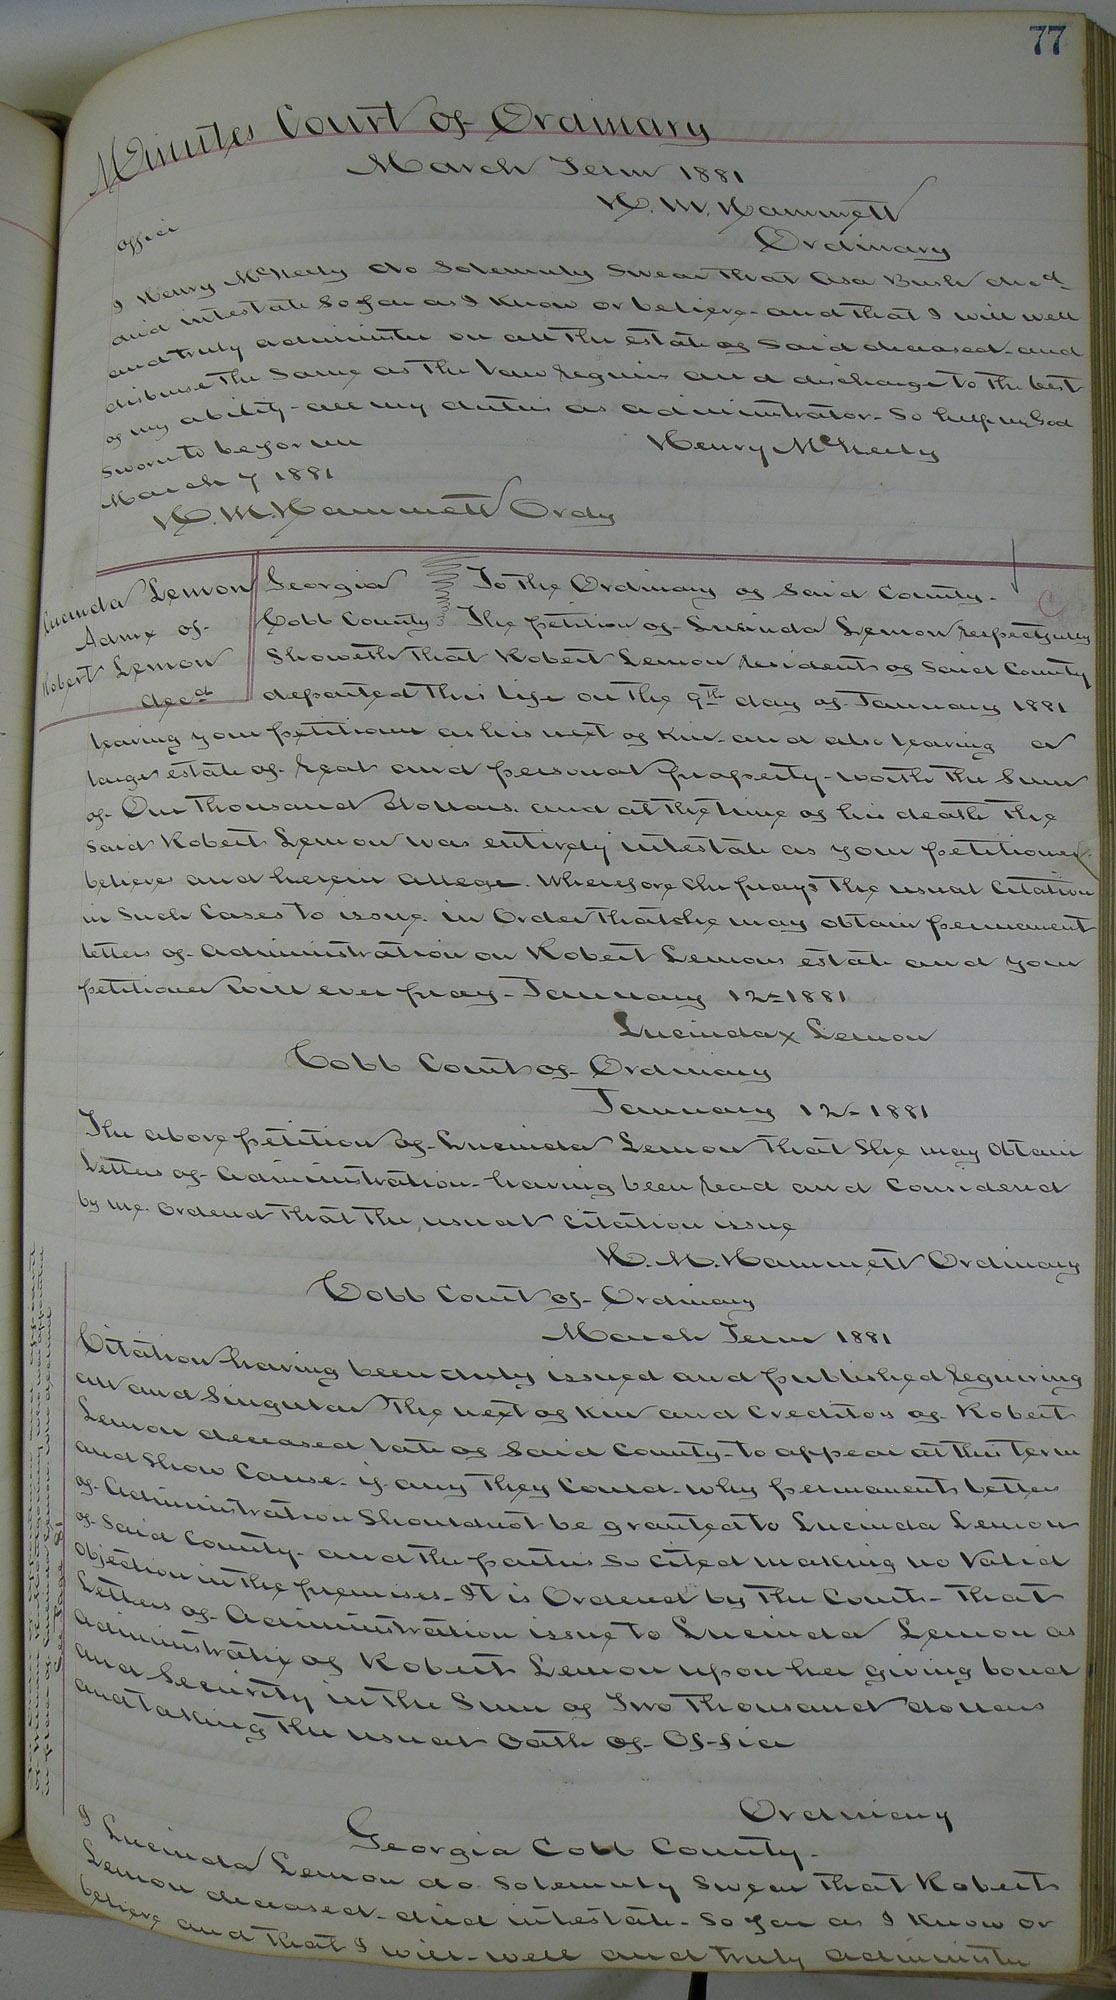 77
Minutes Court of Ordinary
March Term 1881
H. M. Hammett
Ordinary
office
I Henry McNeely do Solemnly Swear that Asa Bush decd
died intestate So far as I Know or believe and that I will well
and truly administer on all the estate of Said deceased and
disburse the Same as the Law requires and discharge to the best
of my ability all my duties as administrator. So help me God
Sworn to before me Henry McNeely
March 7 1881
H. M. Hammett Ordy
Lucinda Lemon
Admx of
Robert Lemon
decd
Georgia To the Ordinary of Said County.
Cobb County The petition of Lucinda Lemon respectfully
Showeth that Robert Lemon resident of Said County
departed this life on the 9th day of January 1881
leaving your petitioner as his next of Kin and also leaving a
large estate of real and personal property worth the Sum
of One thousand dollars. and at the time of his death the
Said Robert Lemon was entirely intestate as your petitioner
believes and herein alleges. Wherefore She prays the usual Citation
in Such Cases to issue in Order that she may obtain permanent
letters of administration on Robert Lemons estate and your
petitioner will ever pray. January 12th 1881
Lucinda x Lemon
Cobb Court of Ordinary
January 12 1881
The above petition of Lucinda Lemon that She may Obtain
Letters of Administration having been read and Considered
by me. Ordered that the usual Citation issue
H. M. Hammett Ordinary
Cobb Court of Ordinary
March Term 1881
Citation having been duly issued and published requiring
all and Singular the next of Kin and Creditors of Robert
Lemon deceased late of Said County to appear at this term
and Show Cause if any they Could why permanent letters
of Administration Should not be granted to Lucinda Lemon
of Said County. and the parties So cited making no Valid
Objection in the premises. It is Ordered by the Court that
Letters of Administration issue to Lucinda Lemon as
Administratrix of Robert Lemon upon her giving bond
and Security in the Sum of Two thousand dollars
and taking the usual Oath of Office
Ordinary
Georgia Cobb County.
I Lucinda Lemon do Solemnly Swear that Robert
Lemon deceased died intestate So far as I Know or
believe and that I will well and truly administer
See Page 81